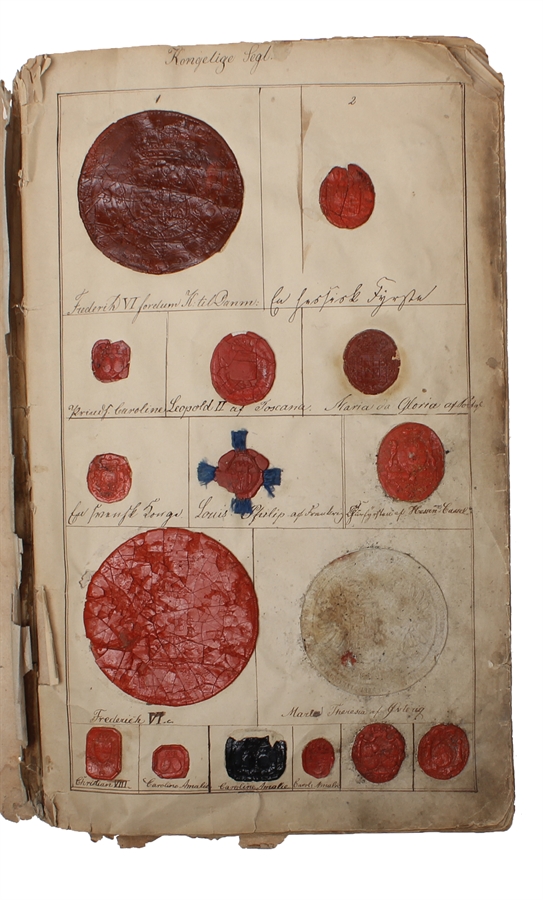 Kongelige Segl.
1
2
Frederik VI fordum K. til Danm:
En hessisk Fyrste
Prindss Caroline
Leopold II af Toscana.
Maria da Gloria af
En svensk Konge
Louis Philip af
Churfyrsten af Hessen Cassel
Frederich VI.
Maria Theresia af
Christian VIII.
Caroline Amalie
Caroline Amalie
Carol: Amalie